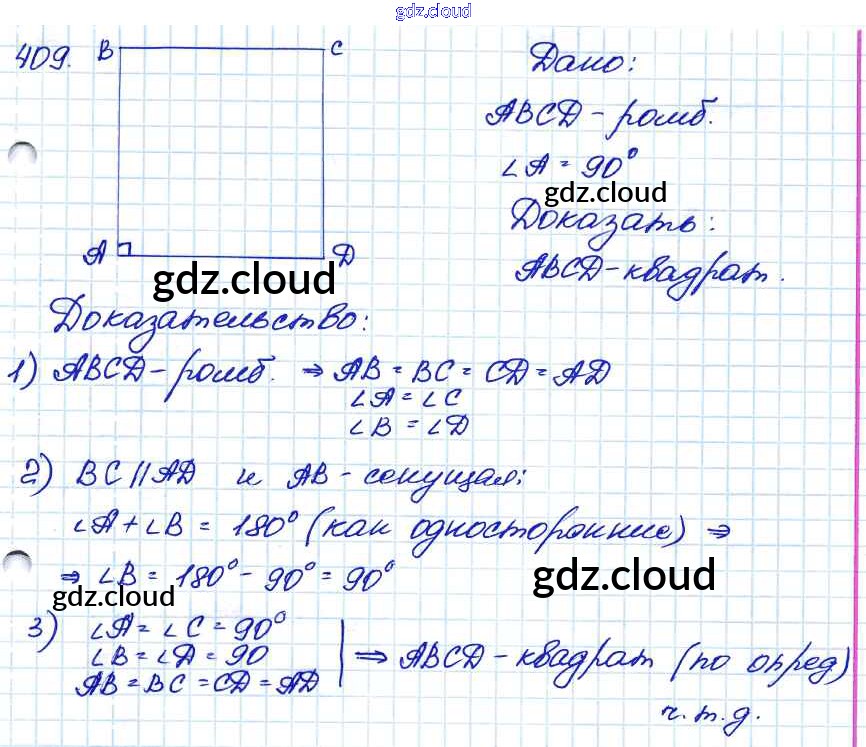 gdz.cloud
409. B C
Дано:
ABCD - ромб.
∠A = 90°
gdz.cloud
Доказать:
A D
ABCD - квадрат.
gdz.cloud
Доказательство:
1) ABCD - ромб. ⇒ AB = BC = CD = AD
∠A = ∠C
∠B = ∠D
2) BC || AD и AB - секущая;
∠A + ∠B = 180° (как односторонние) ⇒
⇒ ∠B = 180° - 90° = 90°
gdz.cloud
gdz.cloud
3) ∠A = ∠C = 90°
∠B = ∠D = 90
AB = BC = CD = AD
⇒ ABCD - квадрат (по опред)
ч.т.д.